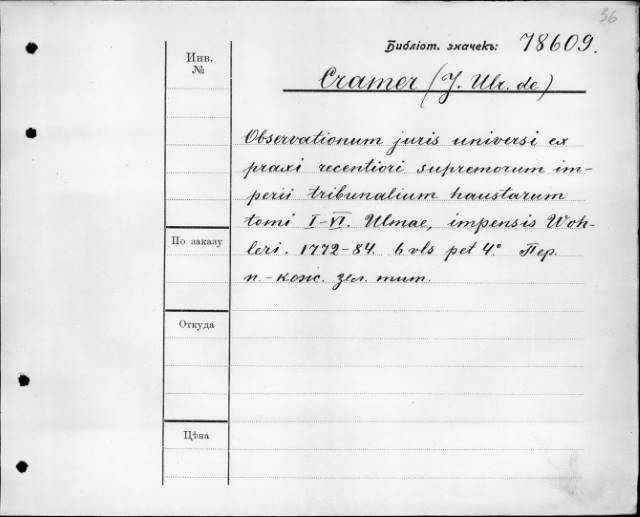 36
Библіот. значекъ: 78609.
Инв.
№
Cramer (J. Ulr. de)
Observationum juris universi ex
praxi recentiori supremorum im-
perii tribunalium haustarum
tomi I-VI. Ulmae, impensis Woh-
leri. 1772-84. 6 vls pet 4.° Пер.
п.-кож. зел. тит.
По заказу
Откуда
Цѣна